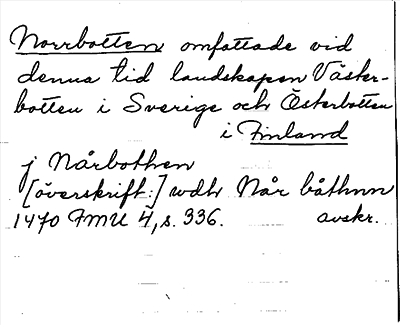 Norrbotten omfattade vid
denna tid landskapen Väster-
botten i Sverige och Österbotten
i Finland
j Nårbothen
[överskrift:] wdh Når båthnn
1470 FMU 4, s. 336. avskr.